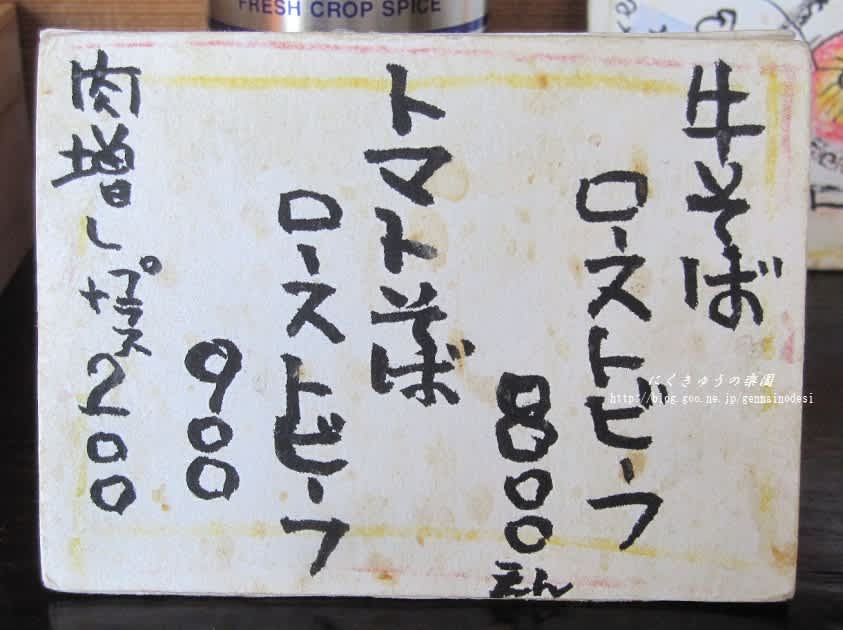 牛そば
ローストビーフ
800えん
トマトそば
ローストビーフ
900
肉増しプラス200
FRESH CROP SPICE
にくきゅうの楽園
https://blog.goo.ne.jp/genmsinodesi